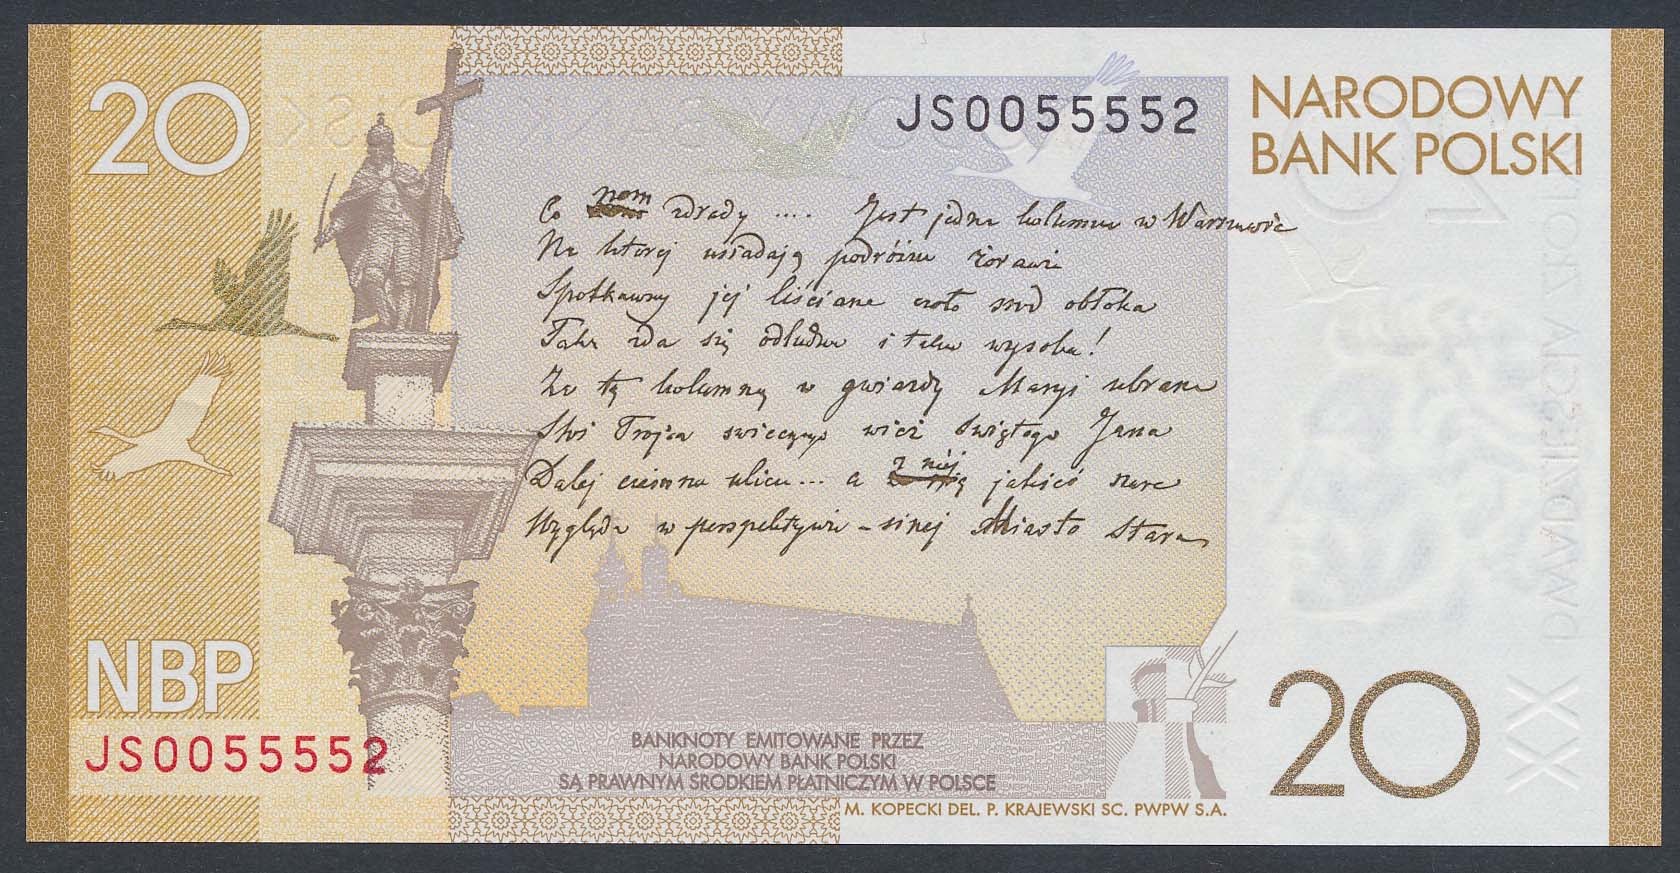 20
JS0055552
NARODOWY
BANK POLSKI
Co nam zdrady .... Jest jedna kolumna w Warszawie
Na ktorej usiadają podróżne żorawie
Spotkawszy jej liściane czoło śród obłoka
Taka zda się odludna i taka wysoka!
Za tą kolumną w gwiazdy Maryi ubrana
Stoi Trójca swiecących wież Swiętego Jana
Dalej ciemna ulica... a z niej jakieś szare
Wygląda w perspektywie - sinej Miasto Stare
NBP
JS0055552
BANKNOTY EMITOWANE PRZEZ
NARODOWY BANK POLSKI
SĄ PRAWNYM ŚRODKIEM PŁATNICZYM W POLSCE
M. KOPECKI DEL. P. KRAJEWSKI SC. PWPW S.A.
20
DWADZIEŚCIA ZŁOTYCH
XX